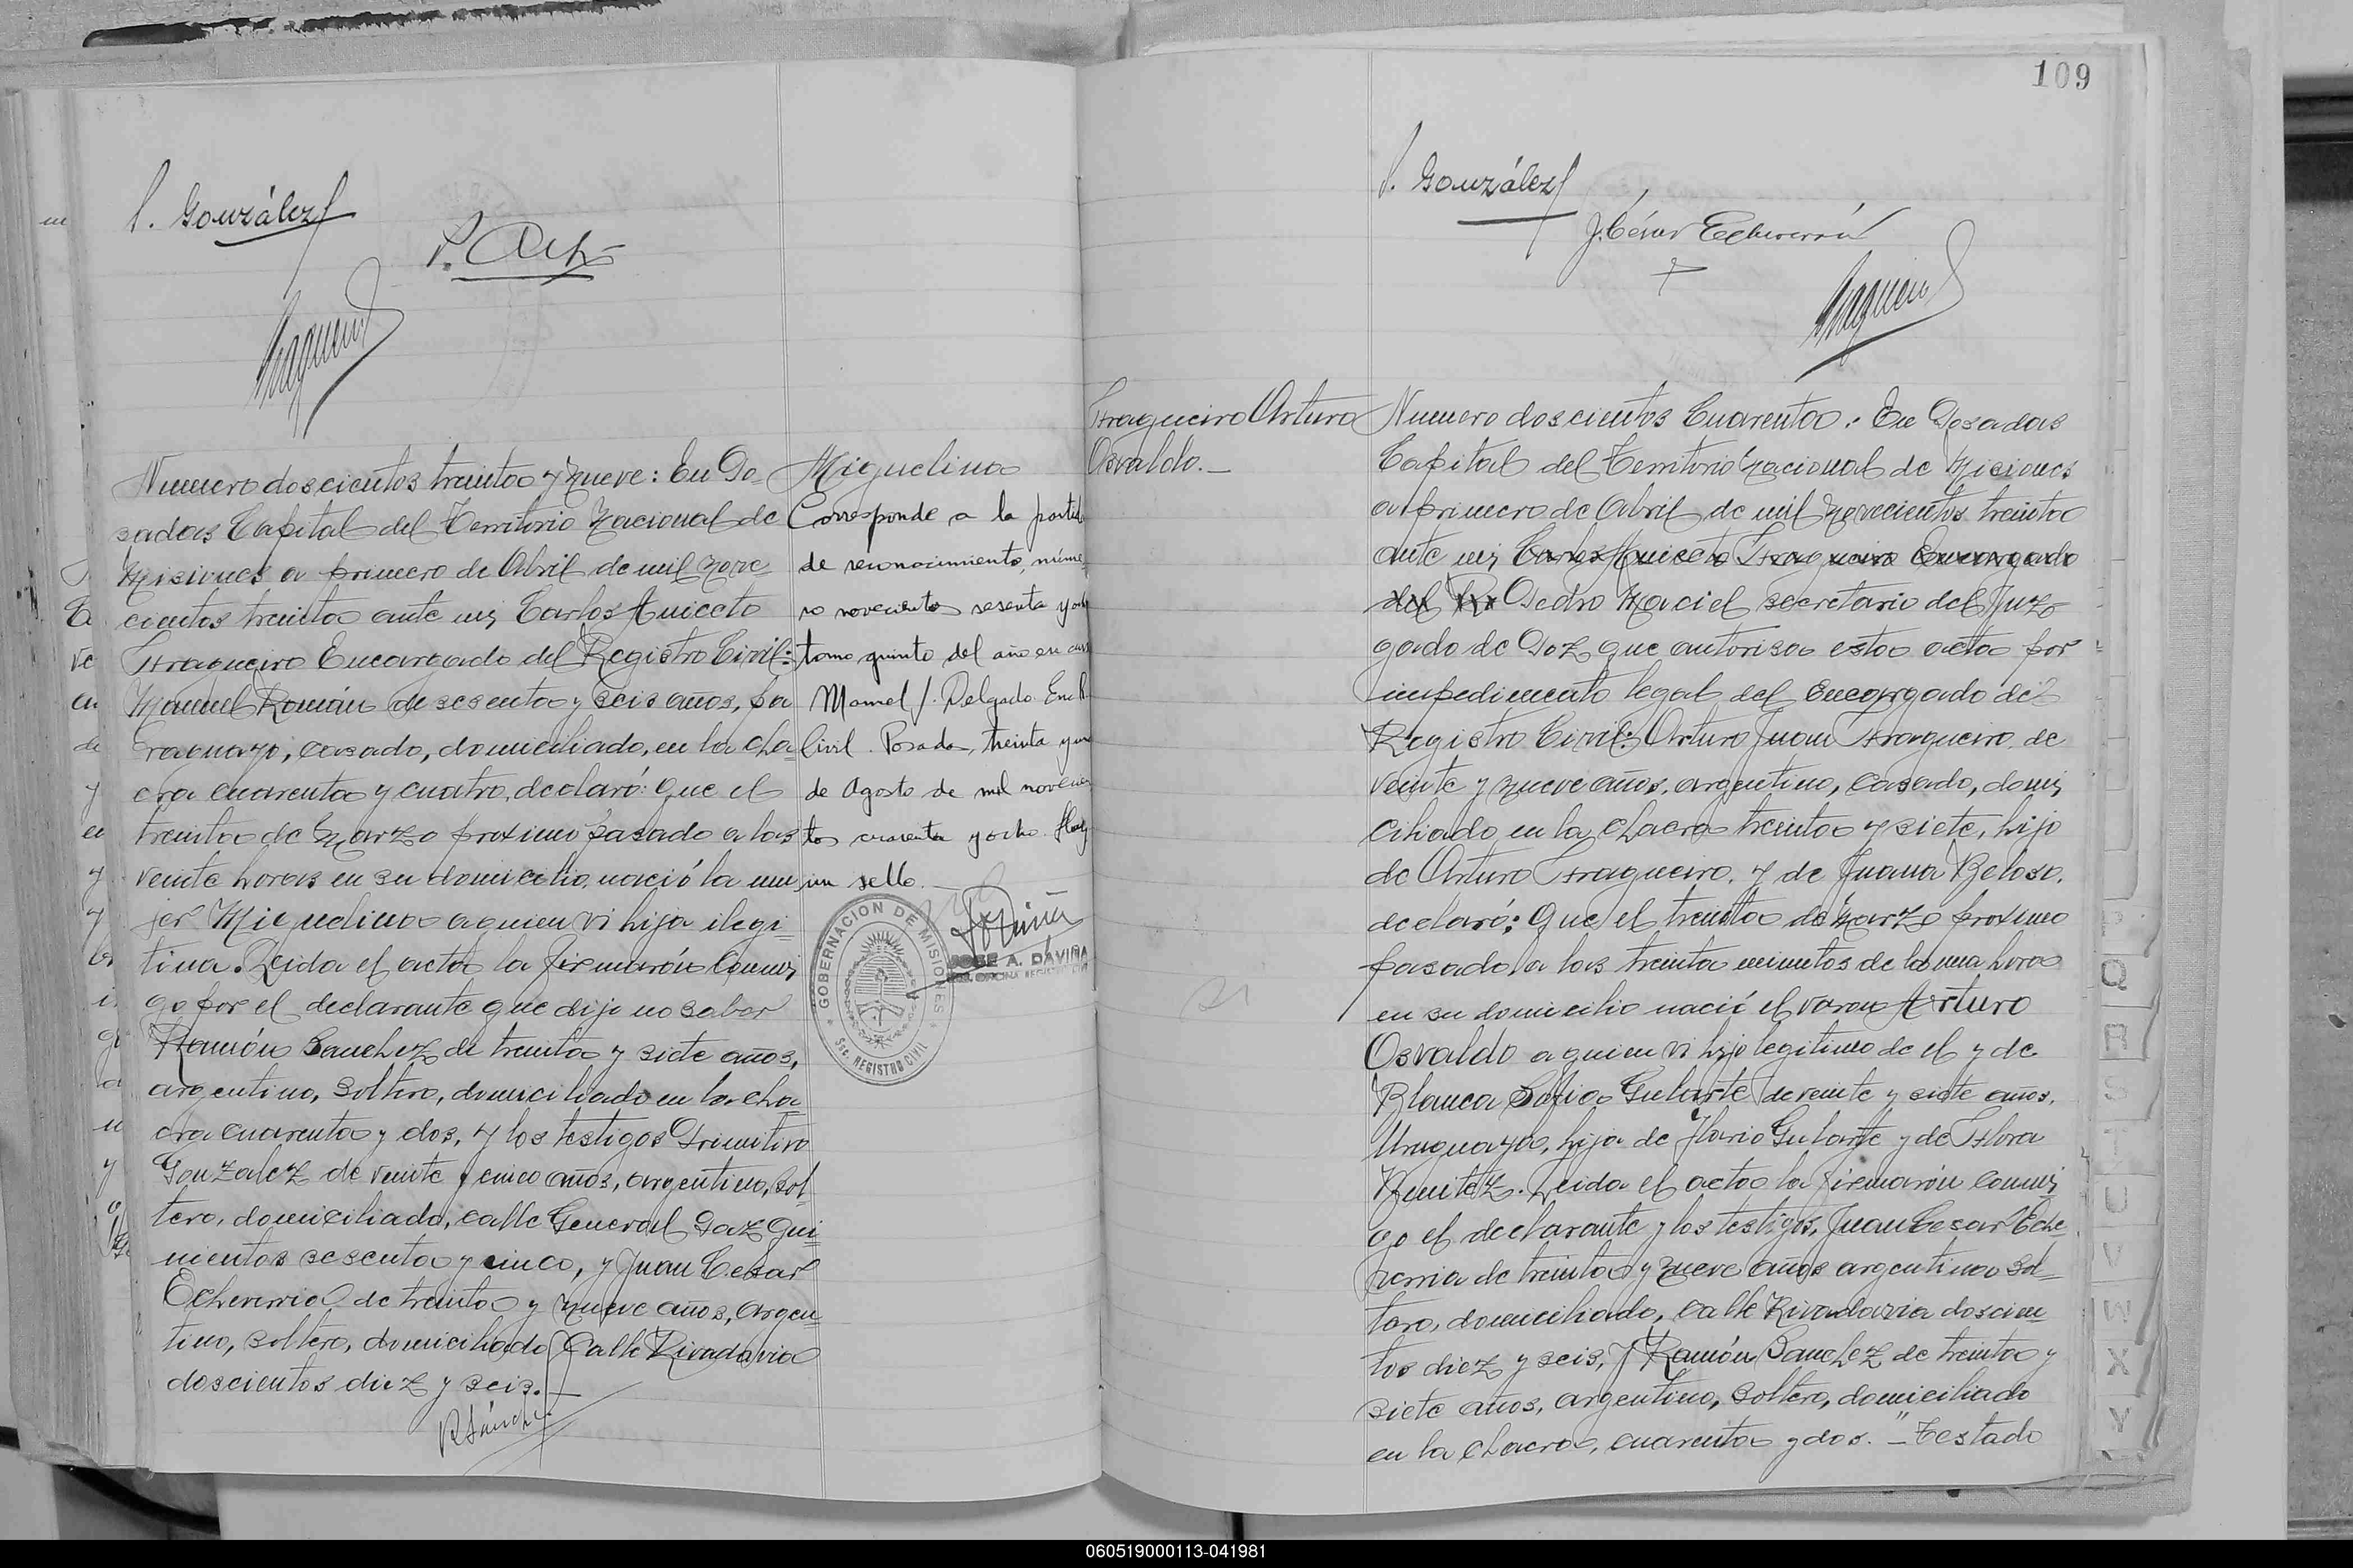 S. González
P. Ach
Fragueiro
Numero doscientos treinta y nueve: En Po-
sadas Capital del Territorio Nacional de
Misiones a primero de Abril de mil nove-
cientos treinta ante mi, Carlos Aniceto
Fragueiro Encargado del Registro Civil:
Manuel Román de sesenta y seis años, pa
raguayo, casado, domiciliado, en la cha-
cra cuarenta y cuatro, declaró: Que el
treinta de Marzo proximo pasado a las
veinte horas en su domicilio, nació la mu
jer Miguelina a quien vi hija ilegi-
tima. Leida el acta la firmarón conmi
go por el declarante que dijo no saber
Ramón Sanchez de treinta y siete años,
argentino, soltero, domiciliado en la cha-
cra cuarenta y dos, y los testigos Primitivo
Gonzalez de veinte y cinco años, argentino, sol-
tero, domiciliado, calle General Paz qui-
nientos sesenta y cinco, y Juan Cesar
Echeverria de treinta y nueve años, argen-
tino, soltero, domiciliado Calle Rivadavia
doscientos diez y seis.-
R Sánchez
Miguelina
Corresponde a la partid
de reconocimiento, núme
ro novecientos sesenta y och
tomo quinto del año en curs
Manuel J. Delgado. Enc. R.
Civil. Posadas, treinta y un
de Agosto de mil novecien
tos cuarenta y ocho. Hay
un sello.-
GOBERNACION DE MISIONES
Sec. REGISTRO CIVIL
JOSE A. DAVIÑA
109
S. González
J. César Echeverría
Fragueiro
Fragueiro Arturo
Osvaldo.-
Numero doscientos Cuarenta: En Posadas
Capital del Territorio Nacional de Misiones
a primero de Abril de mil novecientos treinta
ante mi, Carlos Aniceto Fragueiro Encargado
del Re Pedro Maciel secretario del Juz-
gado de Paz que autorisa esta acta por
impedimento legal del Encargado del
Registro Civil: Arturo Juan Fragueiro, de
veinte y nueve años, argentino, casado, domi
ciliado en la chacra treinta y siete, hijo
de Arturo Fragueiro. y de Juana Beloso.
declaró: Que el treinta de Marzo proximo
pasado a las treinta minutos de la una hora
en su domicilio nació el varon Arturo
Osvaldo a quien vi hijo legitimo de el y de
Blanca Sofia Gularte de veinte y siete años.
Uruguaya, hija de Ilario Gularte y de Flora
Benitez. Leida el acta la firmarón conmi
go el declarante y los testigos, Juan Cesar Eche-
verria de treinta y nueve años argentino sol-
tero, domiciliado, calle Rivadavia doscien-
tos diez y seis, y Ramón Sanchez de treinta y
siete años, argentino, soltero, domiciliado
en la chacra, cuarenta y dos." - Testado
P
Q
R
S
T
U
V
W
X
Y
060519000113-041981